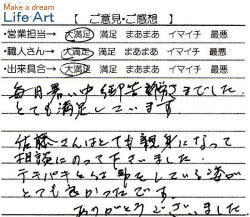 Make a dream
Life Art
【 ご意見・ご感想 】
・営業担当→ 大満足 満足 まあまあ イマイチ 最悪
・職人さん→ 大満足 満足 まあまあ イマイチ 最悪
・出来具合→ 大満足 満足 まあまあ イマイチ 最悪
毎日暑い中御苦労さまでした。
とても満足しています
佐藤さんはとても親身になって
相談にのって下さいました。
テキパキと仕事をしている姿が
とても良かったです。
ありがとうございました